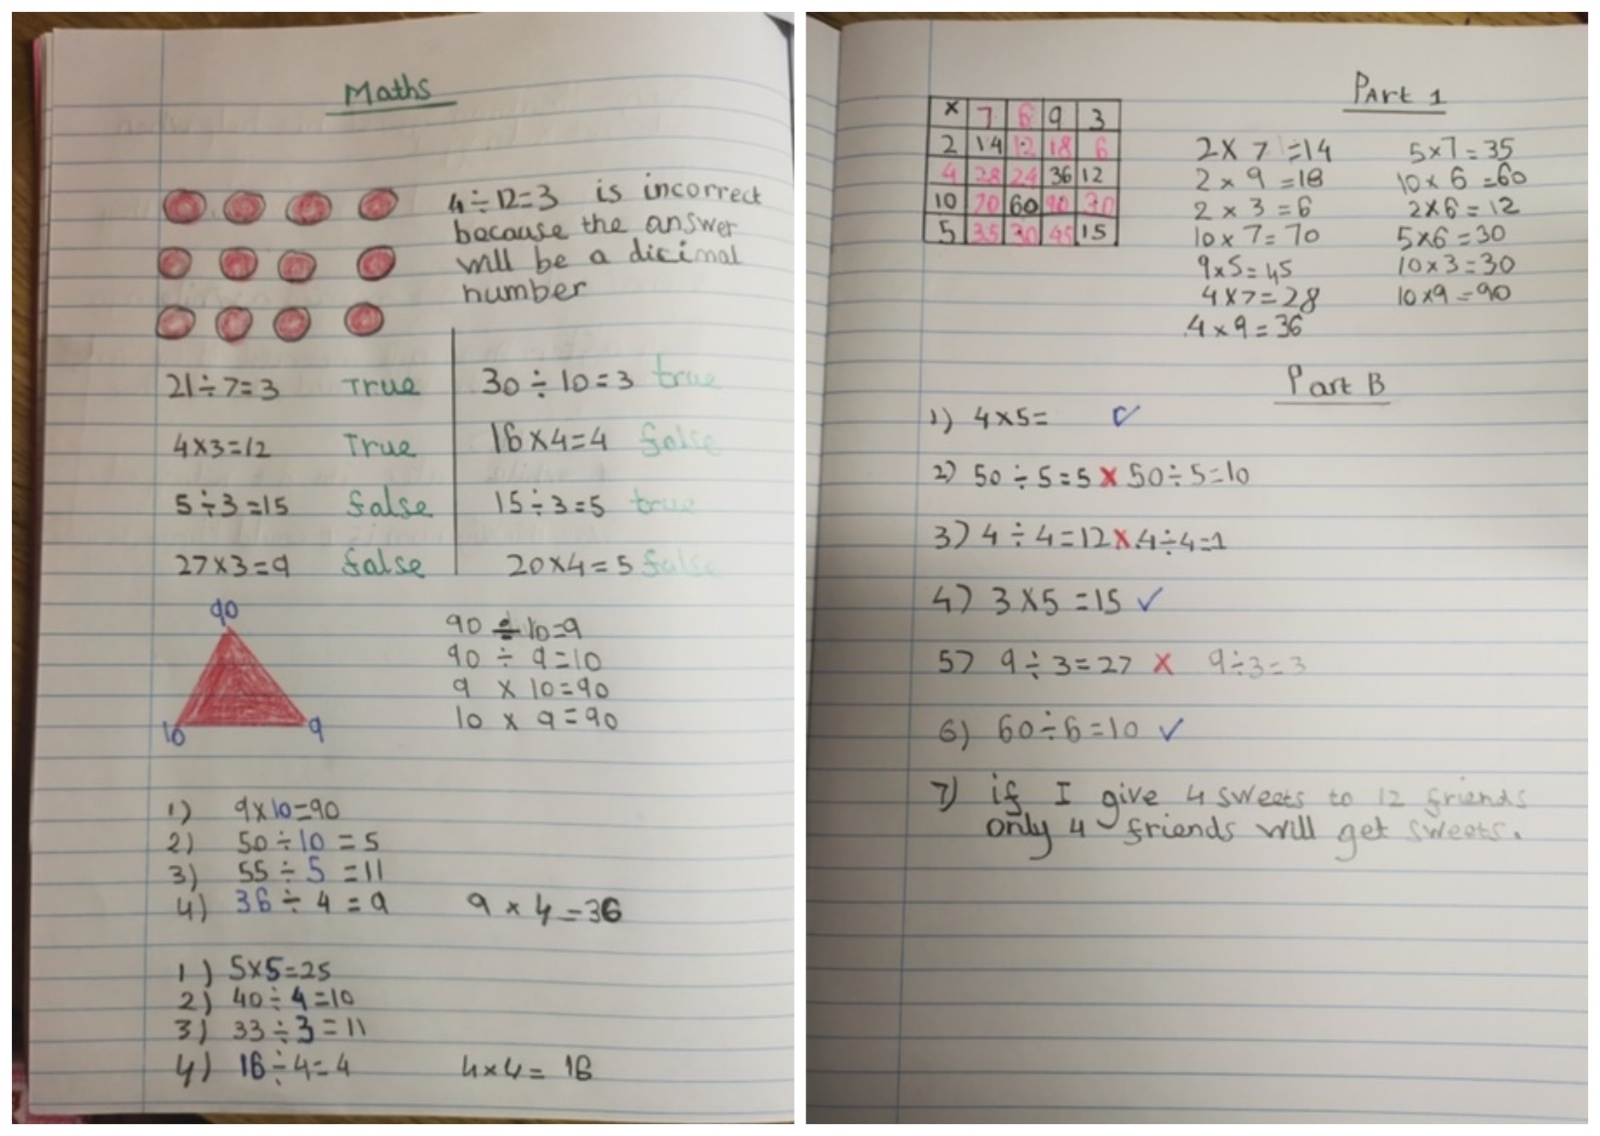 Maths
4÷12=3 is incorrect
because the answer
will be a dicimal
number
21÷7=3 True
30÷10=3 true
4×3=12 True
16×4=4 false
5÷3=15 false
15÷3=5 true
27×3=9 false
20×4=5 false
90
10 9
90 ÷ 10=9
90 ÷ 9=10
9 × 10=90
10 × 9=90
1) 9×10=90
2) 50÷10=5
3) 55÷5=11
4) 36÷4=9 9×4=36
1) 5×5=25
2) 40÷4=10
3) 33÷3=11
4) 16÷4=4 4×4=16
Part 1
× 7 6 9 3
2 14 12 18 6
4 28 24 36 12
10 70 60 90 30
5 35 30 45 15
2×7=14 5×7=35
2×9=18 10×6=60
2×3=6 2×6=12
10×7=70 5×6=30
9×5=45 10×3=30
4×7=28 10×9=90
4×9=36
Part B
1) 4×5= ✓
2) 50÷5=5 × 50÷5=10
3) 4÷4=12 × 4÷4=1
4) 3×5=15 ✓
5) 9÷3=27 × 9÷3=3
6) 60÷6=10 ✓
7) if I give 4 sweets to 12 friends
only 4 friends will get sweets.